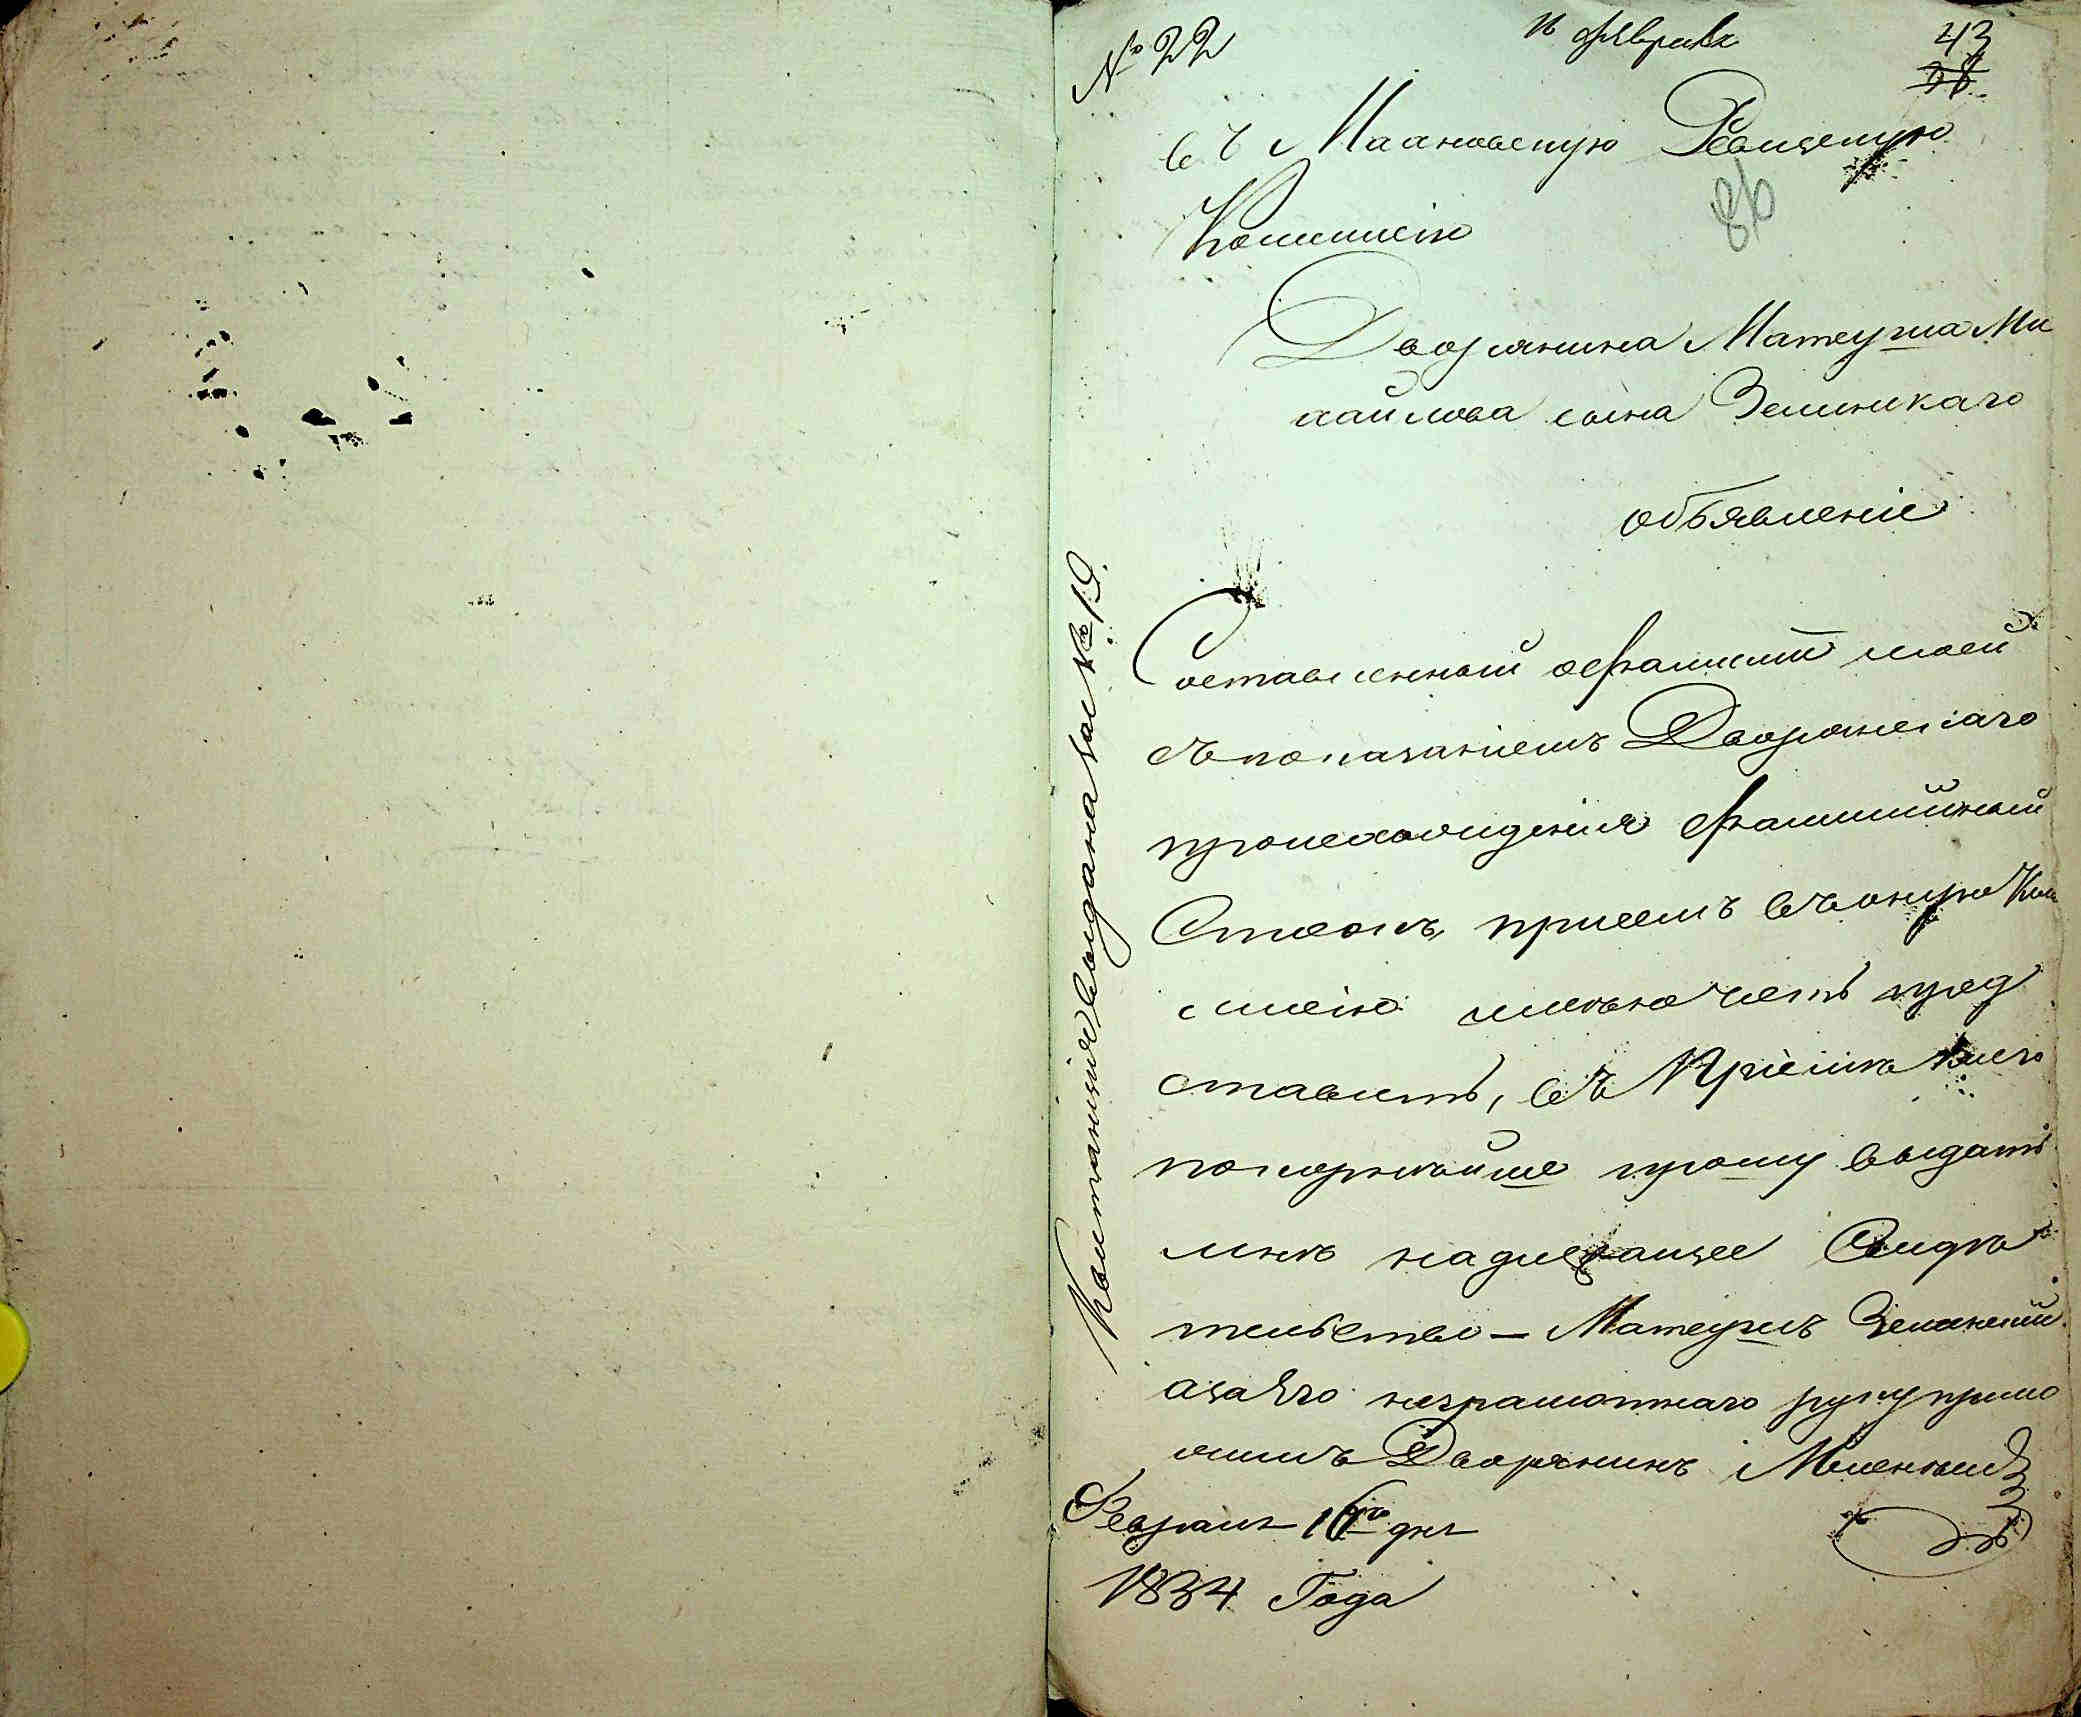 № 22
16 февраля
43
38
въ Махновскую Ревизскую
86
Коммисію
Дворянина Матеуша Ми
хайлова сына Зелинскаго
объявленіе
Составленный о фамиліи моей
съ показаніемъ Дворянскаго
происхожденія фамилійный
Списокъ, при семъ въ оную Ком
мисію имѣю честь пред
ставить, въ Пріемѣ коего
покорнѣйше прошу выдать
мнѣ надлежащее Свидѣ
тельство — Матеушъ Зелинскій
а за Его неграмотнаго руку прило
жилъ Дворянинъ
Февраля 16го дня
1834 Года
Квитанція выдана за № 19.